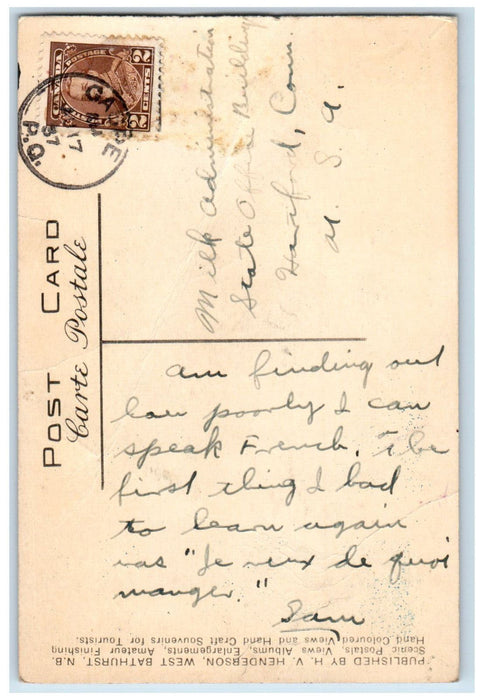 POST CARD
Carte Postale
CANADA
POSTAGE
2 CENTS 2
GASPE
17
37
P.Q.
Milk Administration
State Office Building
Hartford, Conn.
U. S. A.
Am finding out
how poorly I can
speak French. The
first thing I had
to learn again
was "Je veux de quoi
manger."
Sam
PUBLISHED BY H. V. HENDERSON, WEST BATHURST, N.B.
Scenic Postals, Views Albums, Enlargements, Amateur Finishing
Hand Coloured Views and Hand Craft Souvenirs for Tourists.